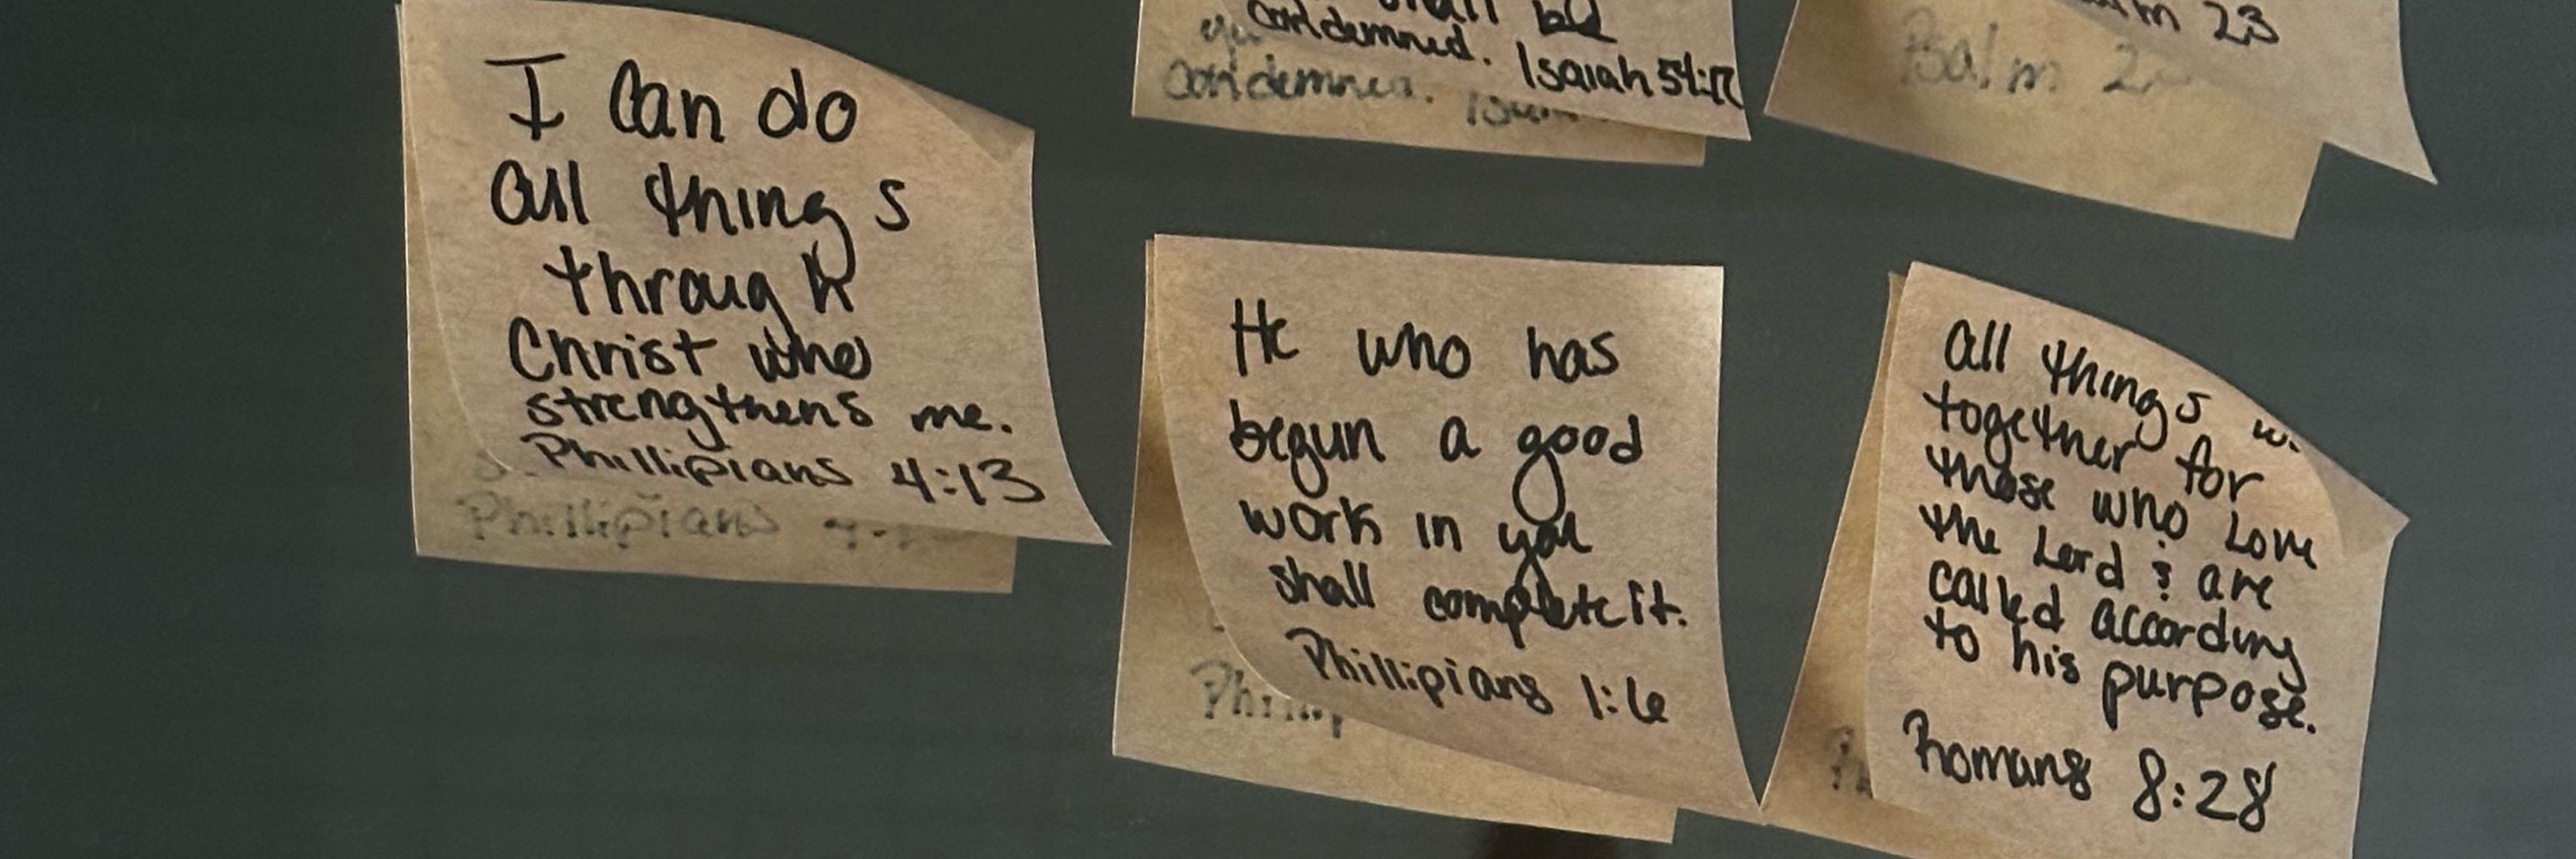 I can do
all things
through
Christ who
strengthens me.
Phillipians 4:13
Phillipians
shall be
condemned. Isaiah 54:17
condemned.
m 23
Psalm 2
He who has
begun a good
work in you
shall complete it.
Phillipians 1:6
Phillip
all things
together for
those who love
the Lord & are
called according
to his purpose.
Romans 8:28